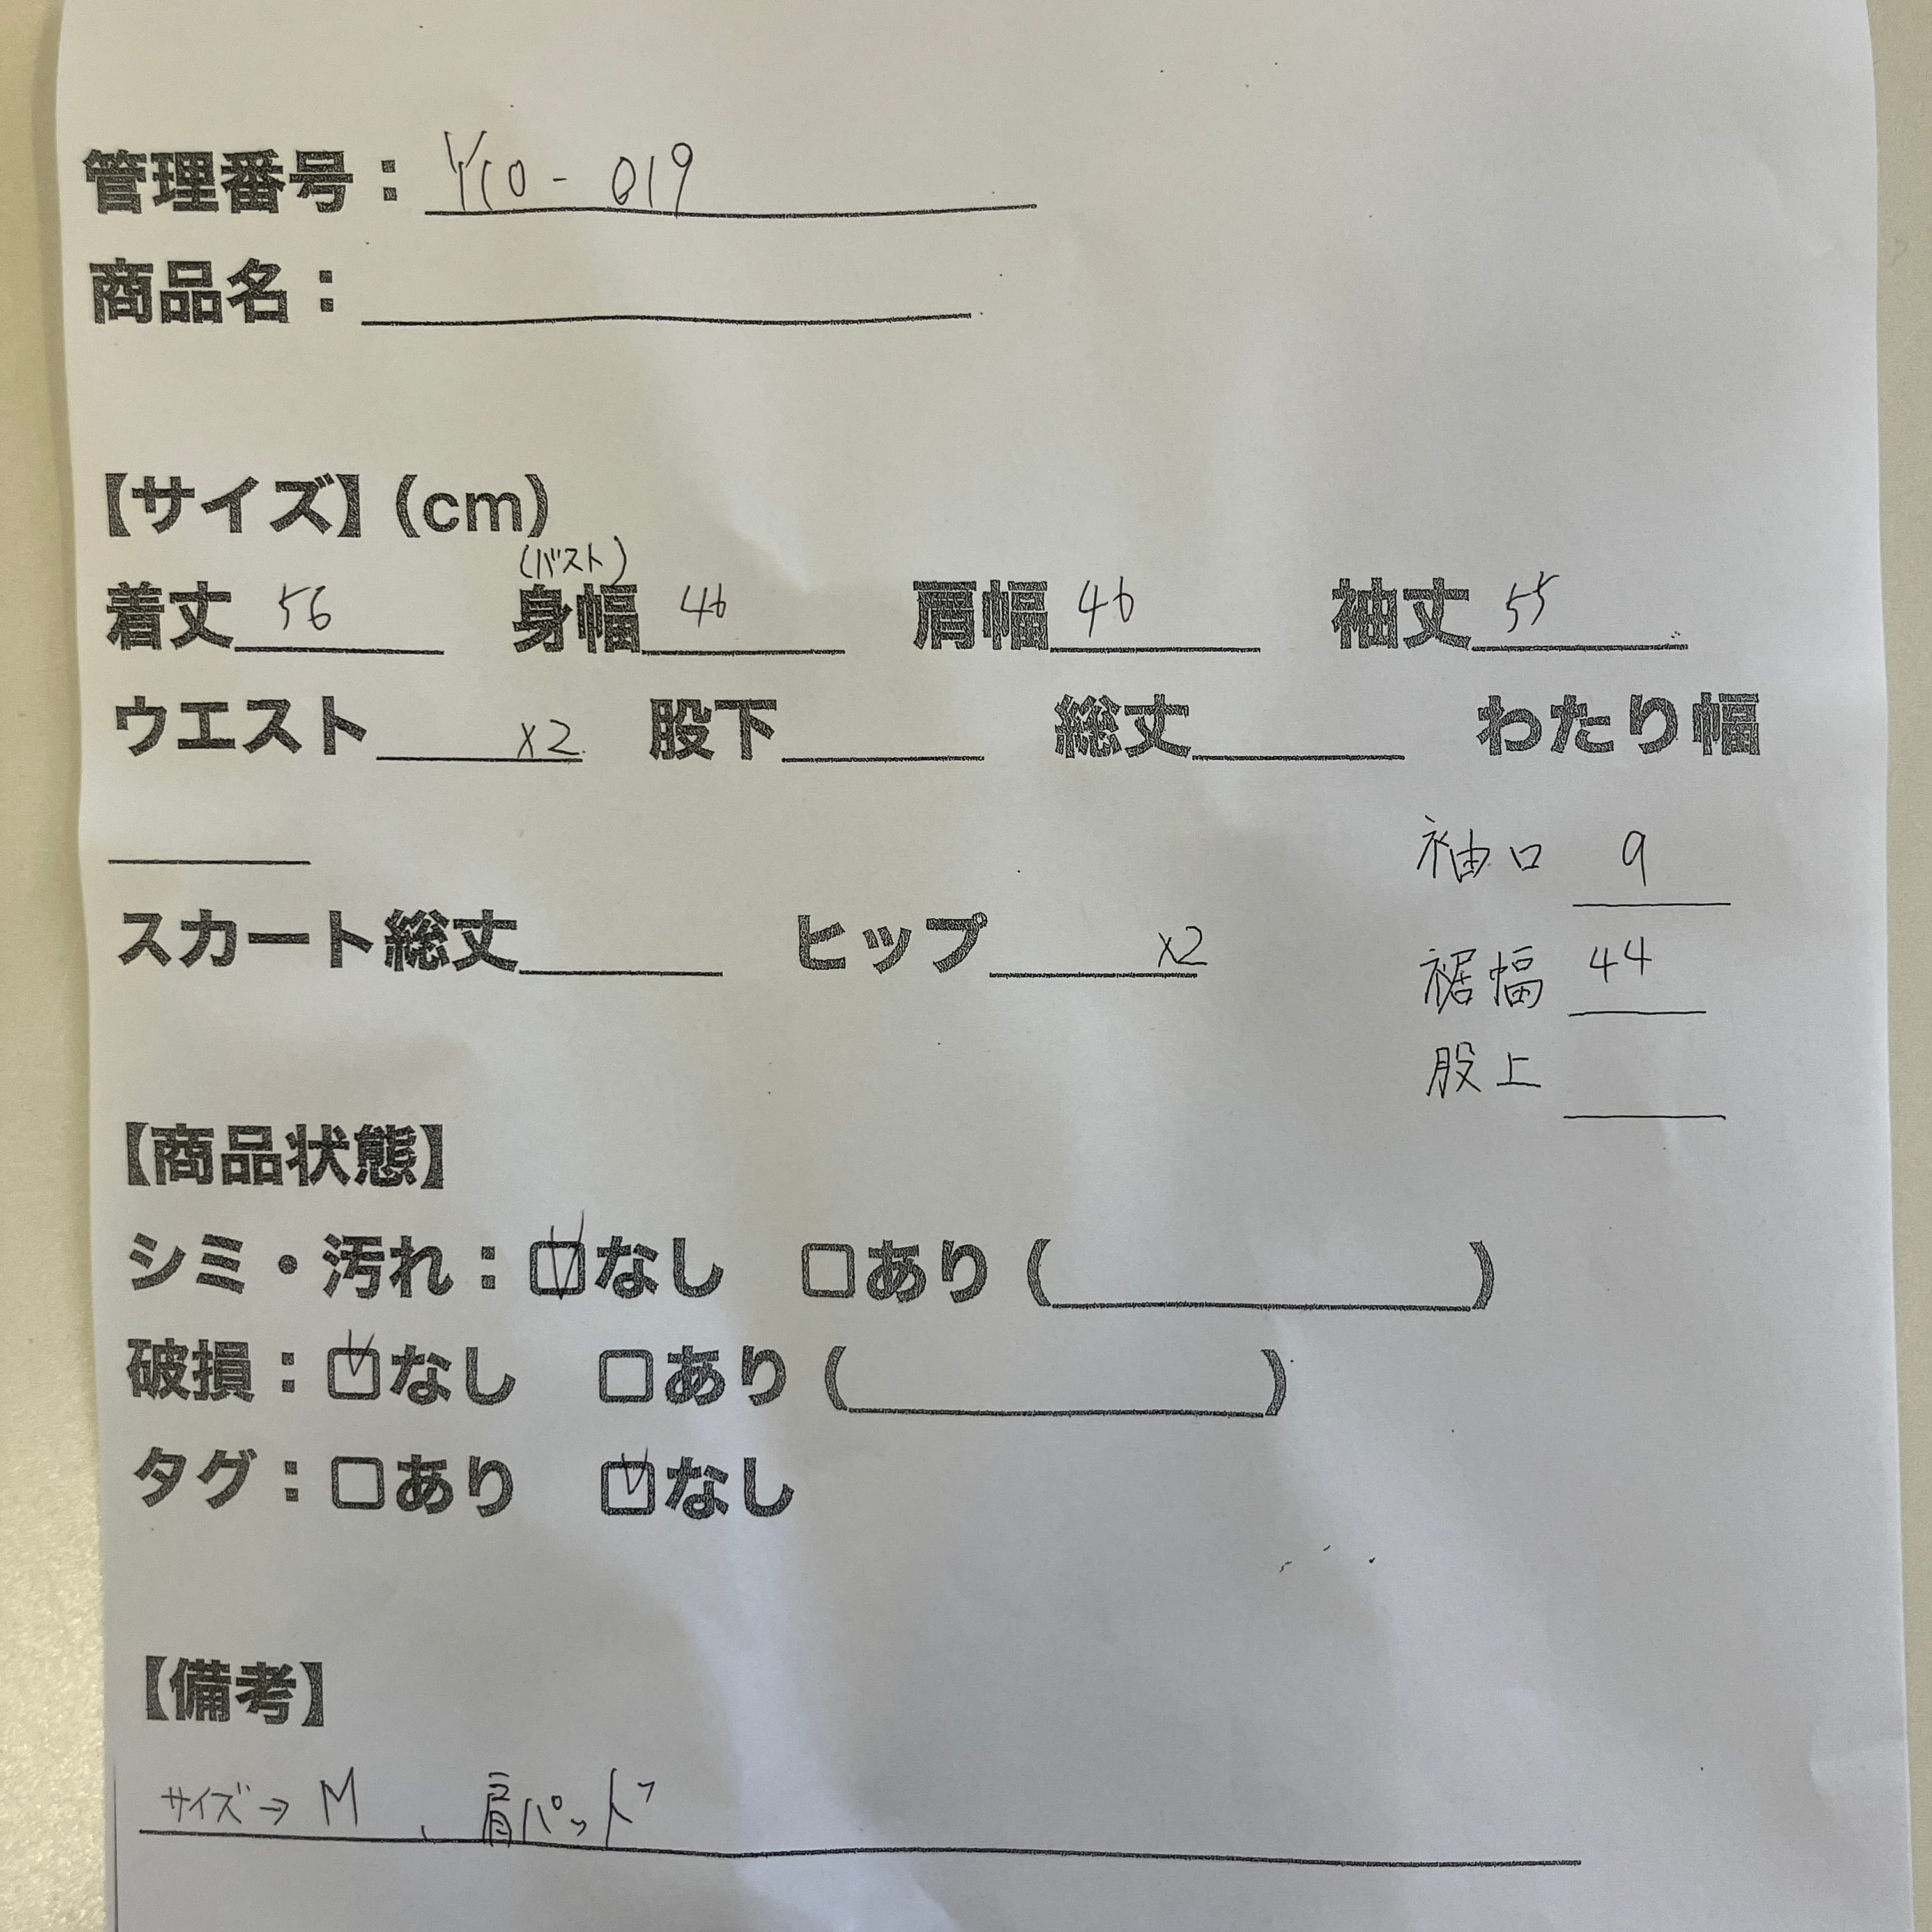 管理番号：YCO - 019
商品名：
【サイズ】(cm)
(バスト)
着丈 56 身幅 46 肩幅 46 袖丈 55
ウエスト x2 股下 総丈 わたり幅
袖口 9
スカート総丈 ヒップ x2
裾幅 44
股上
【商品状態】
シミ・汚れ：☑なし □あり ( )
破損：☑なし □あり ( )
タグ：□あり ☑なし
【備考】
サイズ→ M 、肩パッド